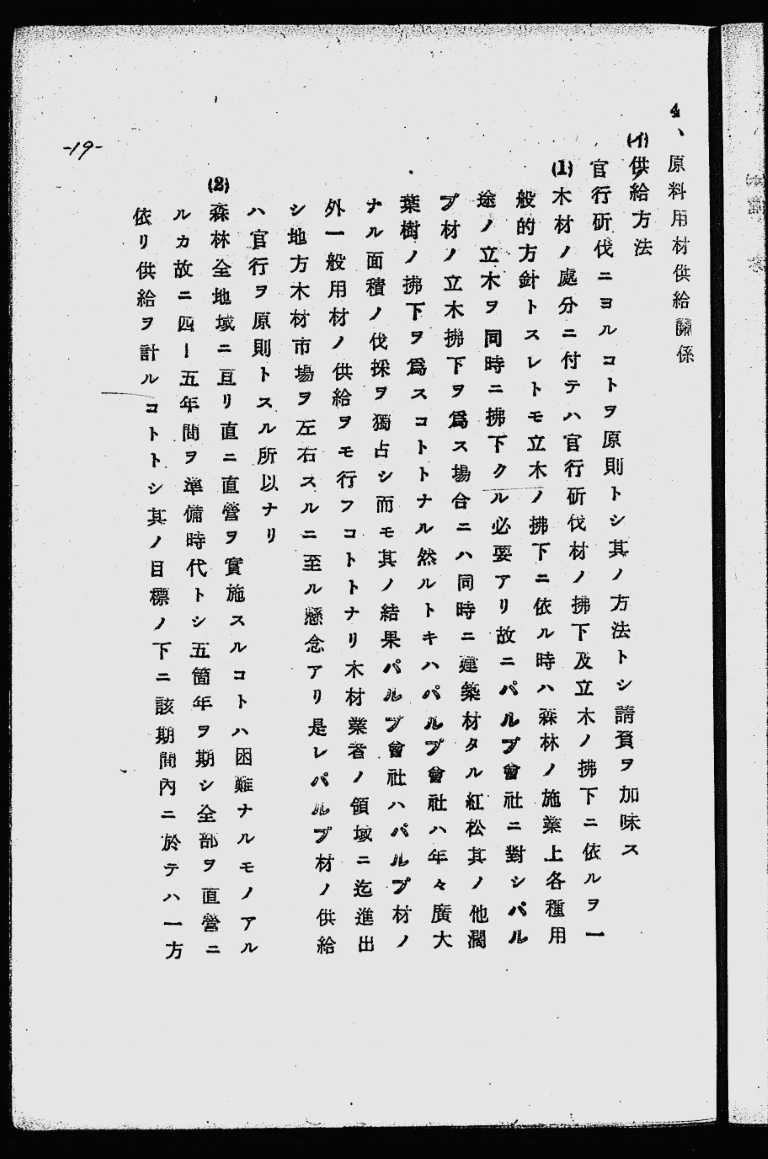 4、原料用材供給關係
(イ)供給方法
官行斫伐ニヨルコトヲ原則トシ其ノ方法トシ請負ヲ加味ス
(1)木材ノ處分ニ付テハ官行斫伐材ノ拂下及立木ノ拂下ニ依ルヲ一
般的方針トスレトモ立木ノ拂下ニ依ル時ハ森林ノ施業上各種用
途ノ立木ヲ同時ニ拂下クル必要アリ故ニパルプ會社ニ對シパル
プ材ノ立木拂下ヲ爲ス場合ニハ同時ニ建築材タル紅松其ノ他濶
葉樹ノ拂下ヲ爲スコトトナル然ルトキハパルプ會社ハ年々廣大
ナル面積ノ伐採ヲ獨占シ而モ其ノ結果パルプ會社ハパルプ材ノ
外一般用材ノ供給ヲモ行フコトトナリ木材業者ノ領域ニ迄進出
シ地方木材市場ヲ左右スルニ至ル懸念アリ是レパルプ材ノ供給
ハ官行ヲ原則トスル所以ナリ
(2)森林全地域ニ亘リ直ニ直營ヲ實施スルコトハ困難ナルモノアル
ルカ故ニ四ー五年間ヲ準備時代トシ五箇年ヲ期シ全部ヲ直營ニ
依リ供給ヲ計ルコトトシ其ノ目標ノ下ニ該期間內ニ於テハ一方
-19-